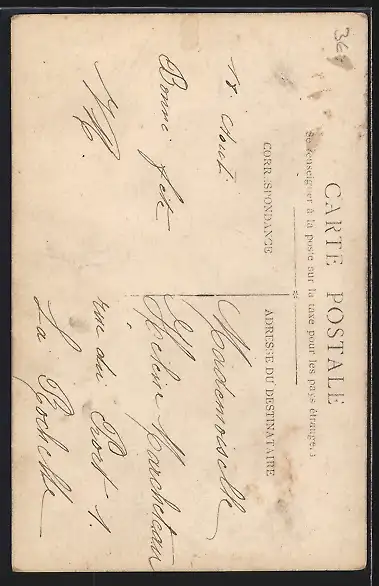 36
CARTE POSTALE
Se renseigner à la poste sur la taxe pour les pays étrangers
CORRESPONDANCE
ADRESSE DU DESTINATAIRE
18 Aout
Bonne fête
Mademoiselle
Hélène Marcheteau
rue du Port 1.
La Rochelle